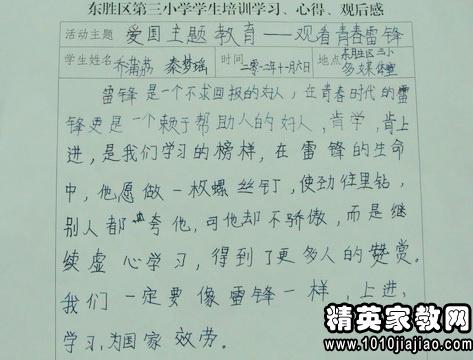 东胜区第三小学学生培训学习、心得、观后感
活动主题 爱国主题教育——观看青春雷锋
学生姓名 乔蒲荔 秦梦瑶 时间 二零一二年十一月六日 地点 东胜区三小多媒体室
雷锋是一个不求回报的好人，在青春时代的雷
锋更是一个赖于帮助人的好人，肯学，肯上
进，是我们学习的榜样，在雷锋的生命
中，他愿做一枚螺丝钉，使劲往里钻，
别人都夸他，可他却不骄傲，而是继
续虚心学习，得到了更多人的赞赏。
我们一定要像雷锋一样，上进，
学习，为国家效劳。
精英家教网
www.1010jiajiao.com